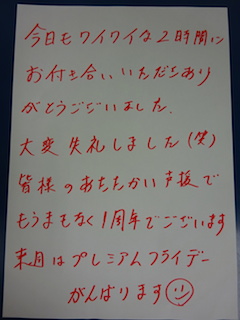 今日もワイワイな2時間に
お付き合いいただきあり
がとうございました.
大変失礼しました(笑)
皆様のあたたかい声援で
もうまもなく1周年でございます
来月はプレミアムフライデー
がんばります